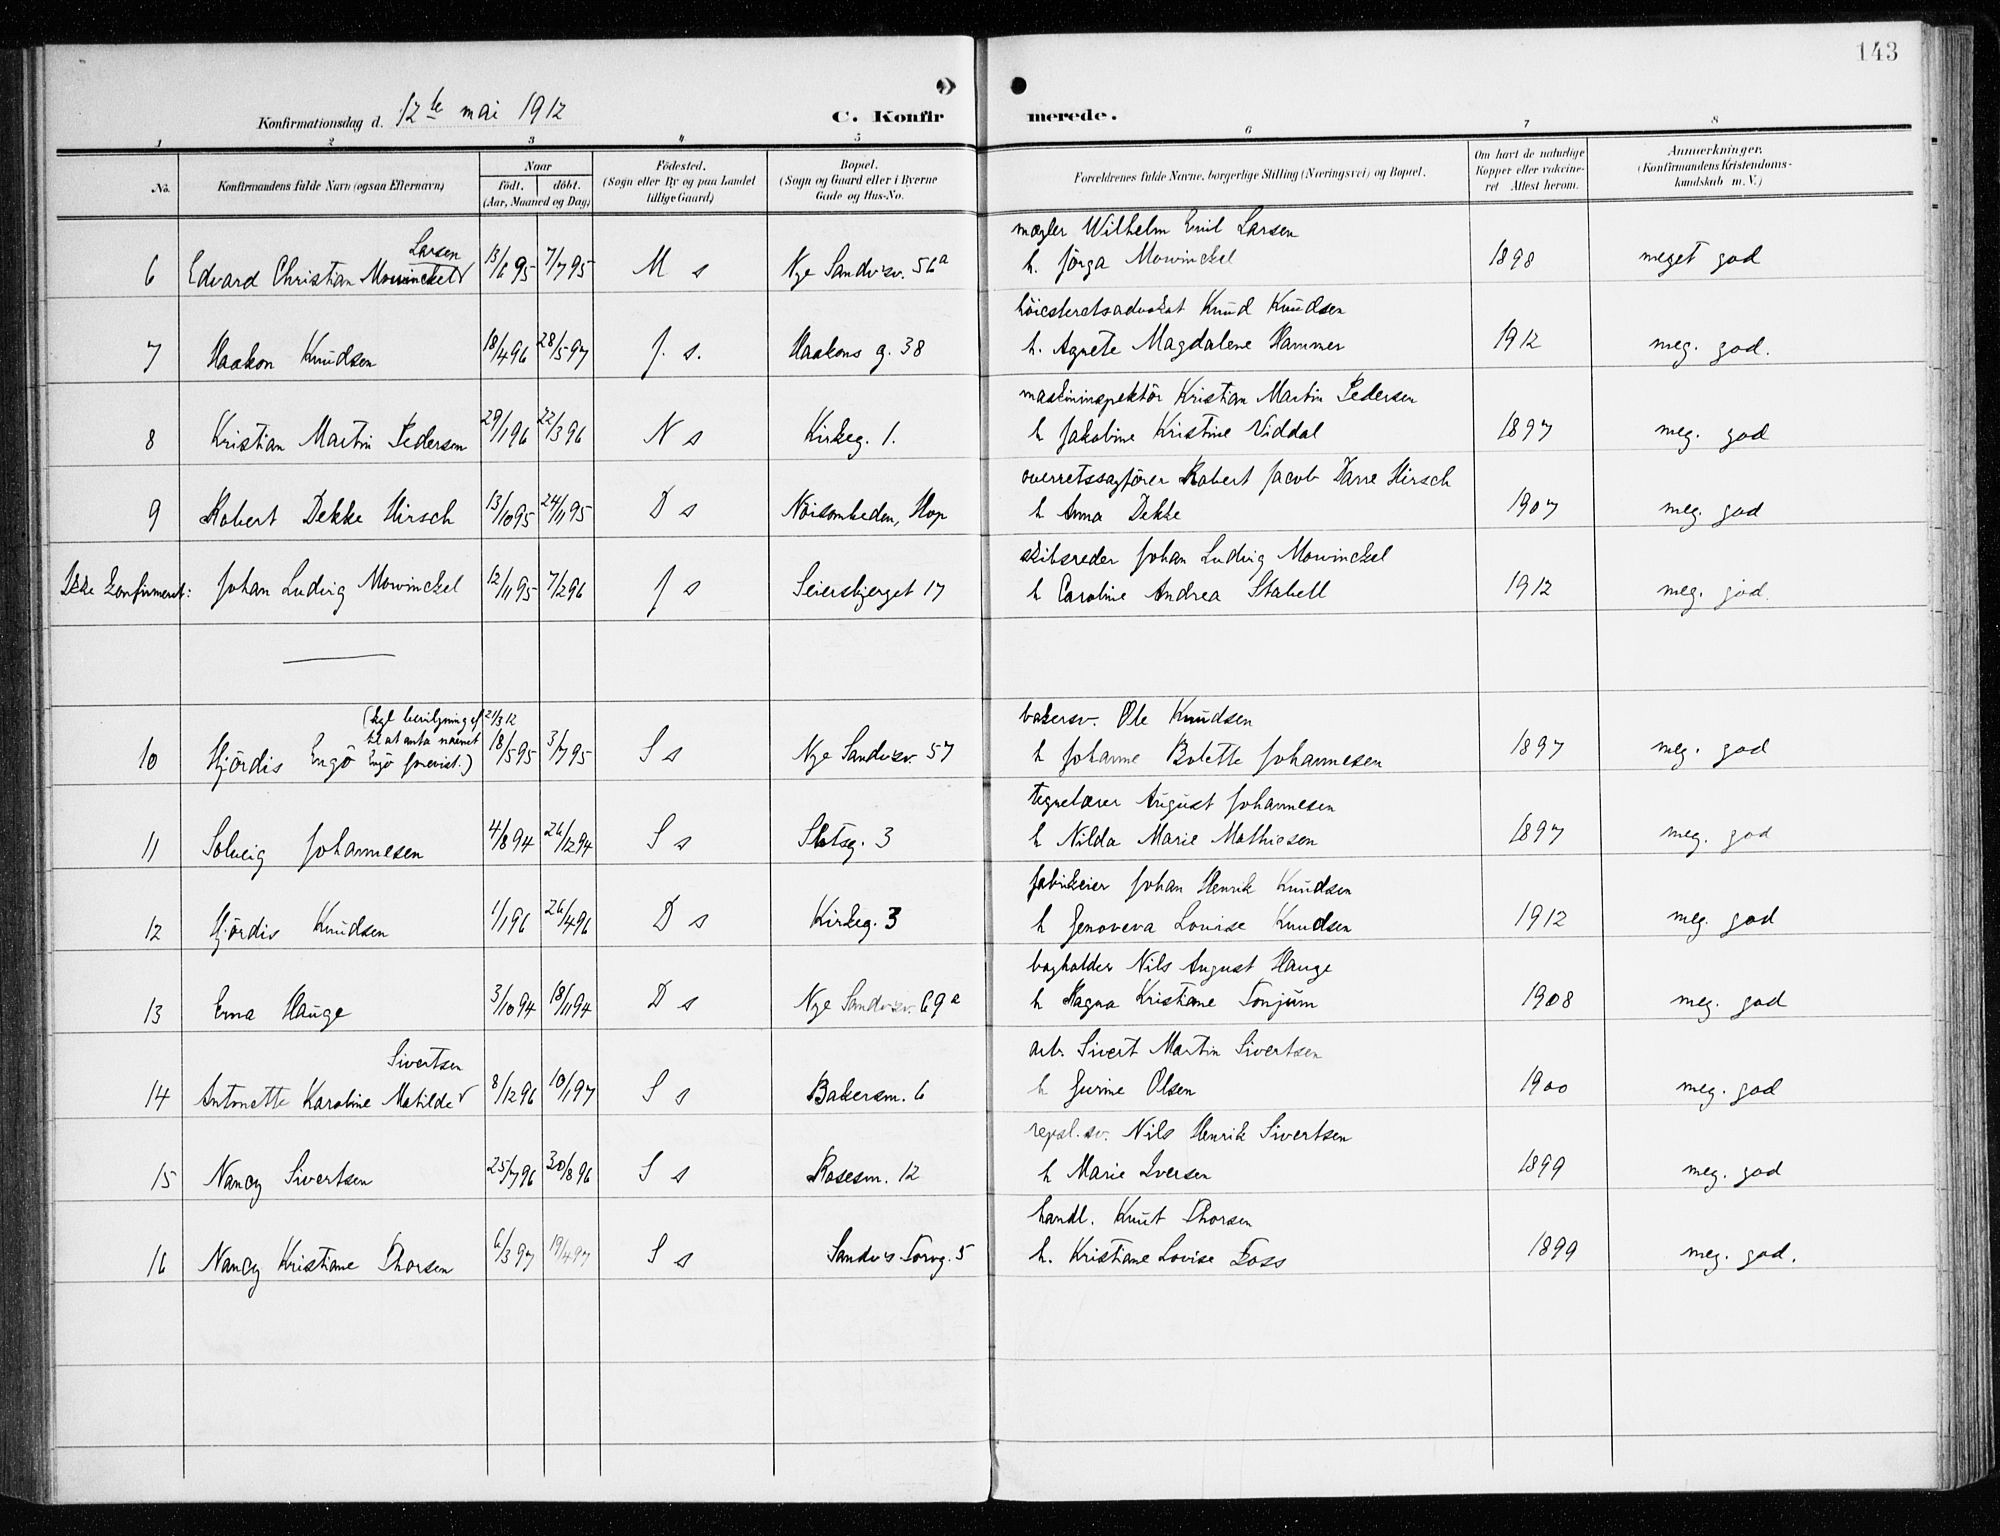 143
Konfirmationsdag d. 12te mai 1912
C. Konfirmerede.
1 2 3 4 5 6 7 8
No.
Konfirmandens fulde Navn (ogsaa Efternavn)
Naar
födt. döbt.
(Aar, Maaned og Dag)
Födested.
(Sogn eller By og paa Landet
tillige Gaard.)
Bopæl.
(Sogn og Gaard eller i Byerne
Gade og Hus-No.
Forældrenes fulde Navne, borgerlige Stilling (Næringsvei) og Bopæl.
Om havt de naturlige
Kopper eller vakcine-
ret Attest herom.
Anmærkninger.
(Konfirmandens Kristendoms-
kundskab m. V.)
Larsen mægler Wilhelm Emil Larsen
6 Edvard Christian Mowinckel √ 13/6 95 7/7 95 M s Nye Sandvsv. 56a h. Jörga Mowinckel 1898 meget god
höiesteretsadvokat Knud Knudsen
7 Haakon Knudsen 18/4 96 28/5 97 J. s. Haakons g. 38 h. Agnete Magdalene Hammer 1912 meg. god.
maskininspektör Kristian Martin Pedersen
8 Kristian Martin Pedersen 29/1 96 22/3 96 N s Kirkeg. 1. h Jakobine Kristine Viddal 1897 meg. god
overretssagförer Robert Jacob Darre Hirsch
9 Robert Dekke Hirsch 13/10 95 24/11 95 D s Nöisomheden, Hop h Anna Dekke 1907 meg. god
skibsreder Johan Ludvig Mowinckel
Ikke konfirmeret: Johan Ludvig Mowinckel 12/11 95 7/2 96 J s Seiersbjerget 17 h Caroline Andrea Stabell 1912 meg. god.
(kgl bevilgning af 21/3 12 bakersv. Ole Knudsen
til at anta navnet
10 Hjördis Engö Engö forevist.) 18/5 95 3/7 95 S s Nye Sandvsv. 57 h Johanne Bolette Johannesen 1897 meg. god
tegnelærer August Johannesen
11 Solveig Johannesen 4/8 94 26/12 94 S s Slotsg. 3 h Nilda Marie Mathiesen 1897 meg. god
fabrikeier Johan Henrik Knudsen
12 Hjördis Knudsen 1/1 96 26/4 96 D s Kirkeg. 3 h Jenoveva Louise Knudsen 1912 meg. god
bogholder Nils August Hauge
13 Erna Hauge 3/10 94 18/11 94 D s Nye Sandvsv. 69a h Ragna Kristiane Tonjum 1908 meg. god
Sivertsen arb. Sivert Martin Sivertsen
14 Antonette Karoline Matilde √ 8/12 96 10/1 97 S s Bakersm. 6 h Jurine Olsen 1900 meg. god
repsl. sv. Nils Henrik Sivertsen
15 Nancy Sivertsen 25/7 96 30/8 96 S s Rosesm. 12 h Marie Iversen 1899 meg. god
handl. Knut Thorsen
16 Nancy Kristiane Thorsen 6/3 97 19/4 97 S s Sandvs Torvg. 5 h. Kristiane Lovise Foss 1899 meg. god.